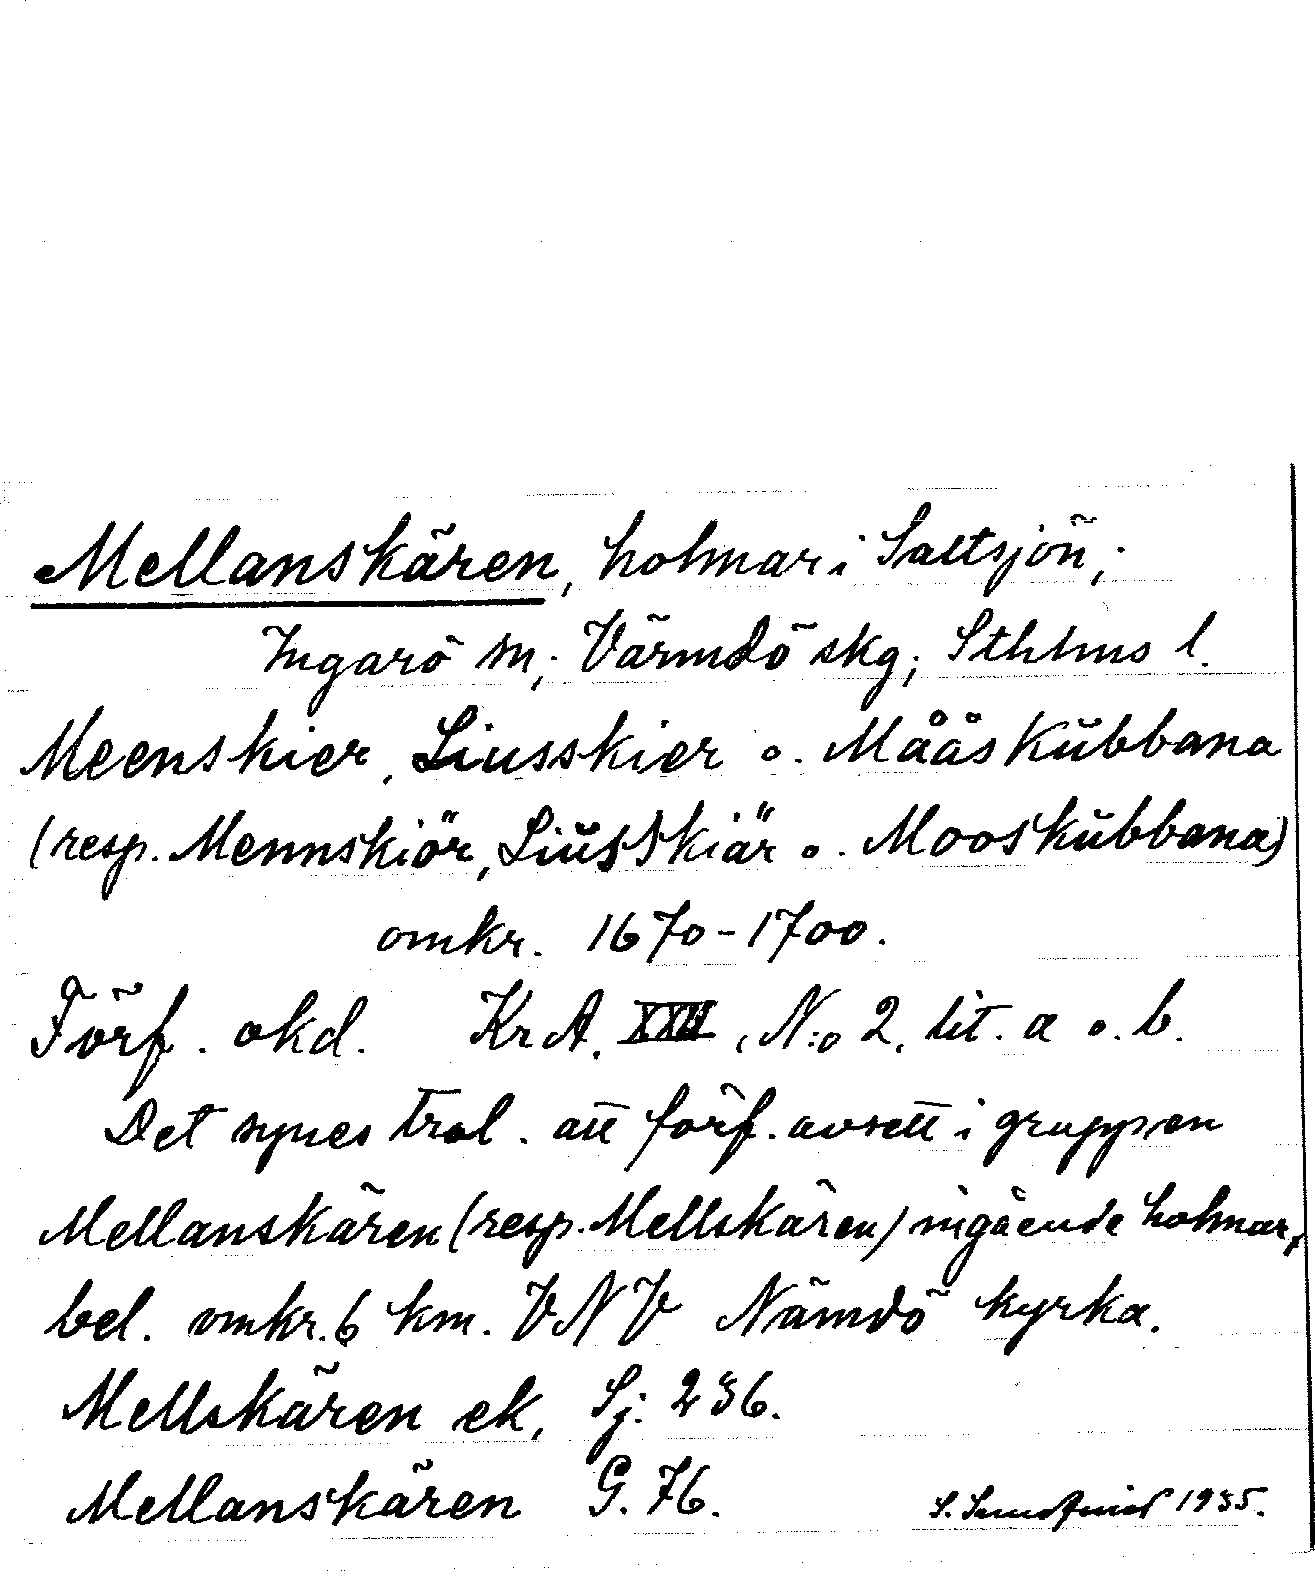 Mellanskären, holmar i Saltsjön;
Ingarö sn; Värmdö skg; Sthlms l.
Meenskier, Liusskier o. Måås Kŭbbana
(resp. Mennskiör, Liŭsskiär o. Mooskŭbbana)
omkr. 1670-1700.
Förf. okd. KrA. XXII, N:o 2, lit. a o. b.
Det synes trol. att förf. avsett i gruppen
Mellanskären (resp. Mellskären) ingående holmar,
bel. omkr. 6 km. VNV Nämdö kyrka.
Mellskären ek, Sj. 236.
Mellanskären G. 76.
1935.